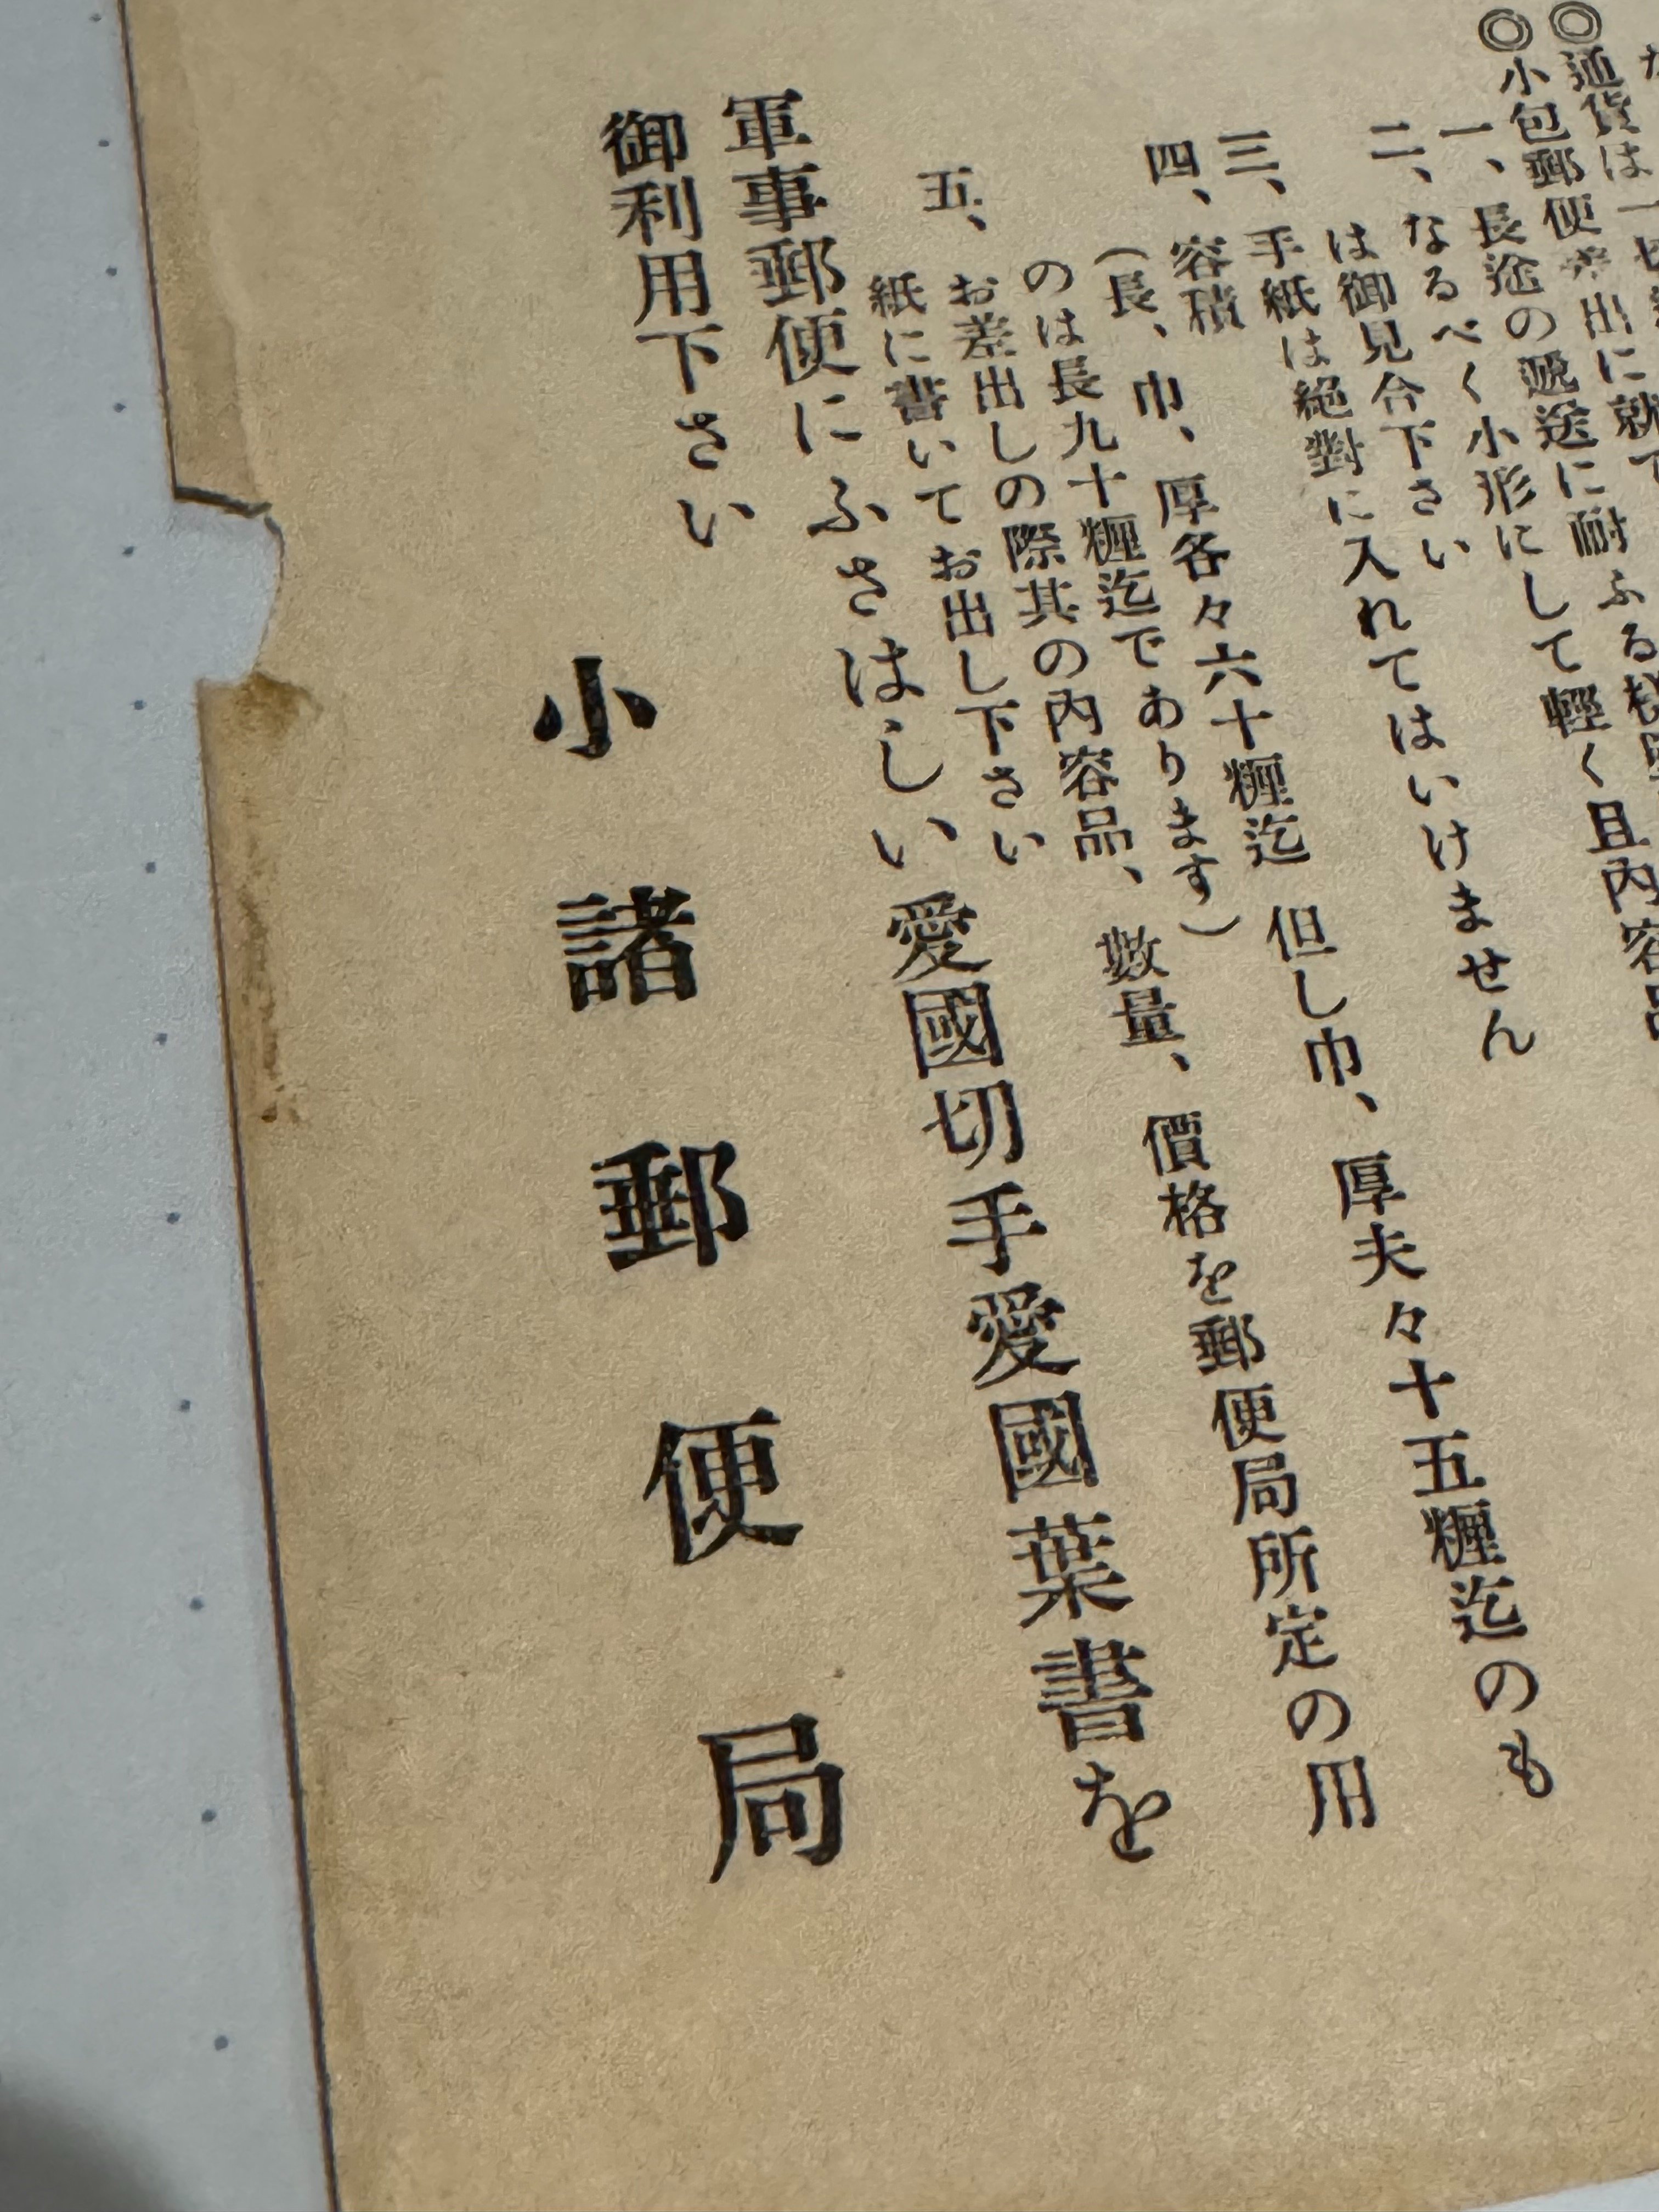 ◎通貨は一
◎小包郵便差出に就て
一、長途の遞送に耐ふる様
なるべく小形にして輕く且內容品
二、
は御見合下さい
三、手紙は絶對に入れてはいけません
四、容積
(長、巾、厚各々六十糎迄 但し巾、厚夫々十五糎迄のも
のは長九十糎迄であります)
五、お差出しの際其の內容品、數量、價格を郵便局所定の用
紙に書いてお出し下さい
軍事郵便にふさはしい愛國切手愛國葉書を
御利用下さい
小諸郵便局